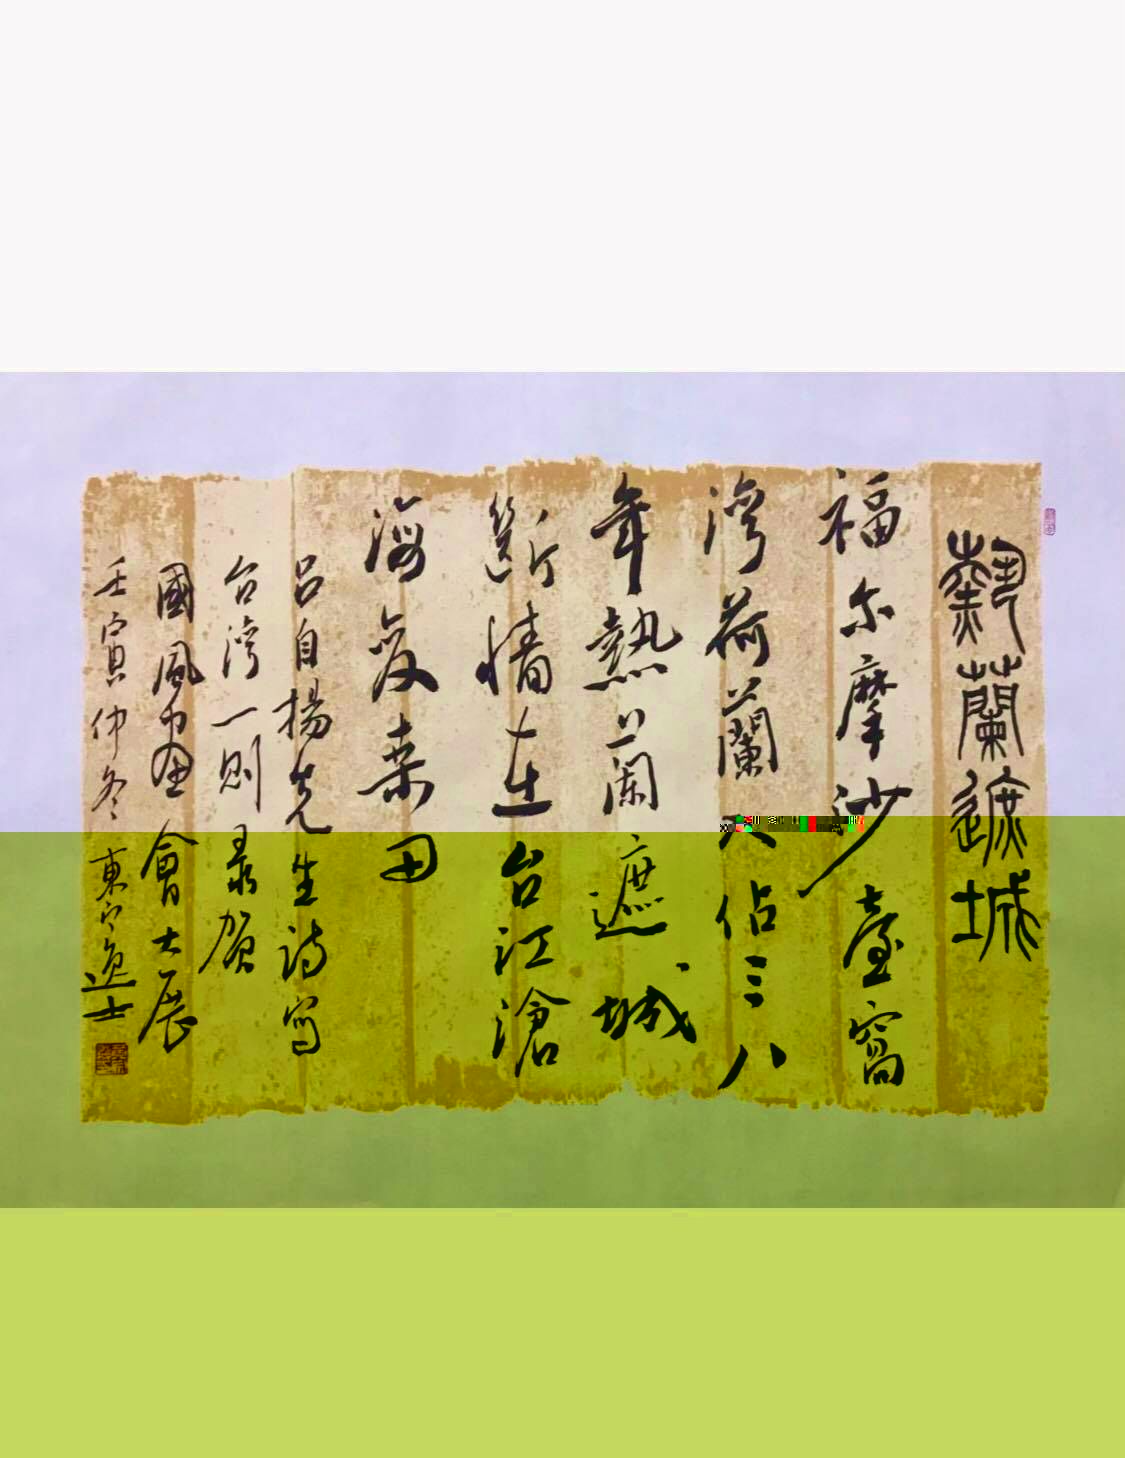 熱蘭遮城
福尔摩沙臺窩
灣荷蘭人佔三八
年熱蘭遮城
斷墻在台江滄
海变桑田
吕自揚先生詩写
台灣一則录賀
國風书画會大展
壬寅仲冬東宁逸士